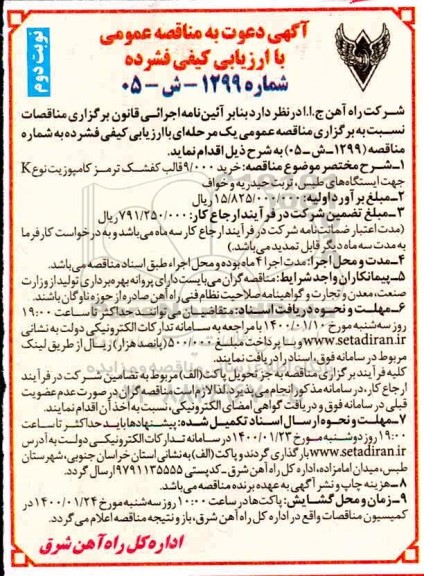 آگهی دعوت به مناقصه عمومی
با ارزیابی کیفی فشرده
شماره ۱۲۹۹ - ش - ۰۵
نوبت دوم
شرکت راه آهن ج.ا.ا در نظر دارد بنابر آئین نامه اجرائی قانون برگزاری مناقصات
نسبت به برگزاری مناقصه عمومی یک مرحله‌ای با ارزیابی کیفی فشرده به شماره
مناقصه (۱۲۹۹-ش-۰۵) به شرح ذیل اقدام نماید.
۱-شرح مختصر موضوع مناقصه: خرید ۹/۰۰۰ قالب کفشک ترمز کامپوزیت نوع K
جهت ایستگاه‌های طبس، تربت حیدریه و خواف
۲-مبلغ برآورد اولیه: ۱۵/۸۲۵/۰۰۰/۰۰۰ ریال
۳-مبلغ تضمین شرکت در فرآیند ارجاع کار: ۷۹۱/۲۵۰/۰۰۰ ریال
(مدت اعتبار ضمانت‌نامه شرکت در فرآیند ارجاع کار سه ماه می‌باشد و به درخواست کارفرما
به مدت سه ماه دیگر قابل تمدید می‌باشد.)
۴-مدت و محل اجرا: مدت اجرا ۴ ماه بوده و محل اجراء طبق اسناد مناقصه می‌باشد.
۵-پیمانکاران واجد شرایط: مناقصه گران می‌بایست دارای پروانه بهره برداری تولید از وزارت
صنعت، معدن و تجارت و گواهینامه صلاحیت نظام فنی راه آهن صادره از حوزه ناوگان باشند.
۶-مهلت و نحوه دریافت اسناد: متقاضیان می‌توانند حداکثر تا ساعت ۱۹:۰۰
روز سه‌شنبه مورخ ۱۴۰۰/۰۱/۱۰ با مراجعه به سامانه تدارکات الکترونیکی دولت به نشانی
www.setadiran.ir و با پرداخت مبلغ ۵۰۰/۰۰۰ (پانصد هزار) ریال از طریق لینک
مربوط در سامانه فوق، اسناد را دریافت نمایند.
کلیه فرآیند برگزاری مناقصه به جز تحویل پاکت (الف) مربوط به تضامین شرکت در فرآیند
ارجاع کار، در سامانه مذکور انجام می‌پذیرد. لذا لازم است مناقصه‌گران در صورت عدم عضویت
قبلی در سامانه فوق و دریافت گواهی امضای الکترونیکی، نسبت به اخذ آن اقدام نمایند.
۷-مهلت و نحوه ارسال اسناد تکمیل شده: پیشنهادها باید حداکثر تا ساعت
۱۹:۰۰ روز دوشنبه مورخ ۱۴۰۰/۰۱/۲۳ در سامانه تدارکات الکترونیکی دولت به آدرس
www.setadiran.ir بارگذاری گردند و پاکت (الف) به نشانی استان خراسان جنوبی، شهرستان
طبس، میدان امامزاده، اداره کل راه آهن شرق - کدپستی ۹۷۹۱۱۳۵۵۵۵ ارسال گردد.
۸-هزینه چاپ و نشر آگهی به عهده برنده مناقصه می‌باشد.
۹-زمان و محل گشایش: پاکت‌ها در ساعت ۱۰:۰۰ روز سه‌شنبه مورخ ۱۴۰۰/۰۱/۲۴ در
کمیسیون مناقصات واقع در اداره کل راه آهن شرق، باز و نتیجه مناقصه اعلام می‌گردد.
اداره کل راه آهن شرق